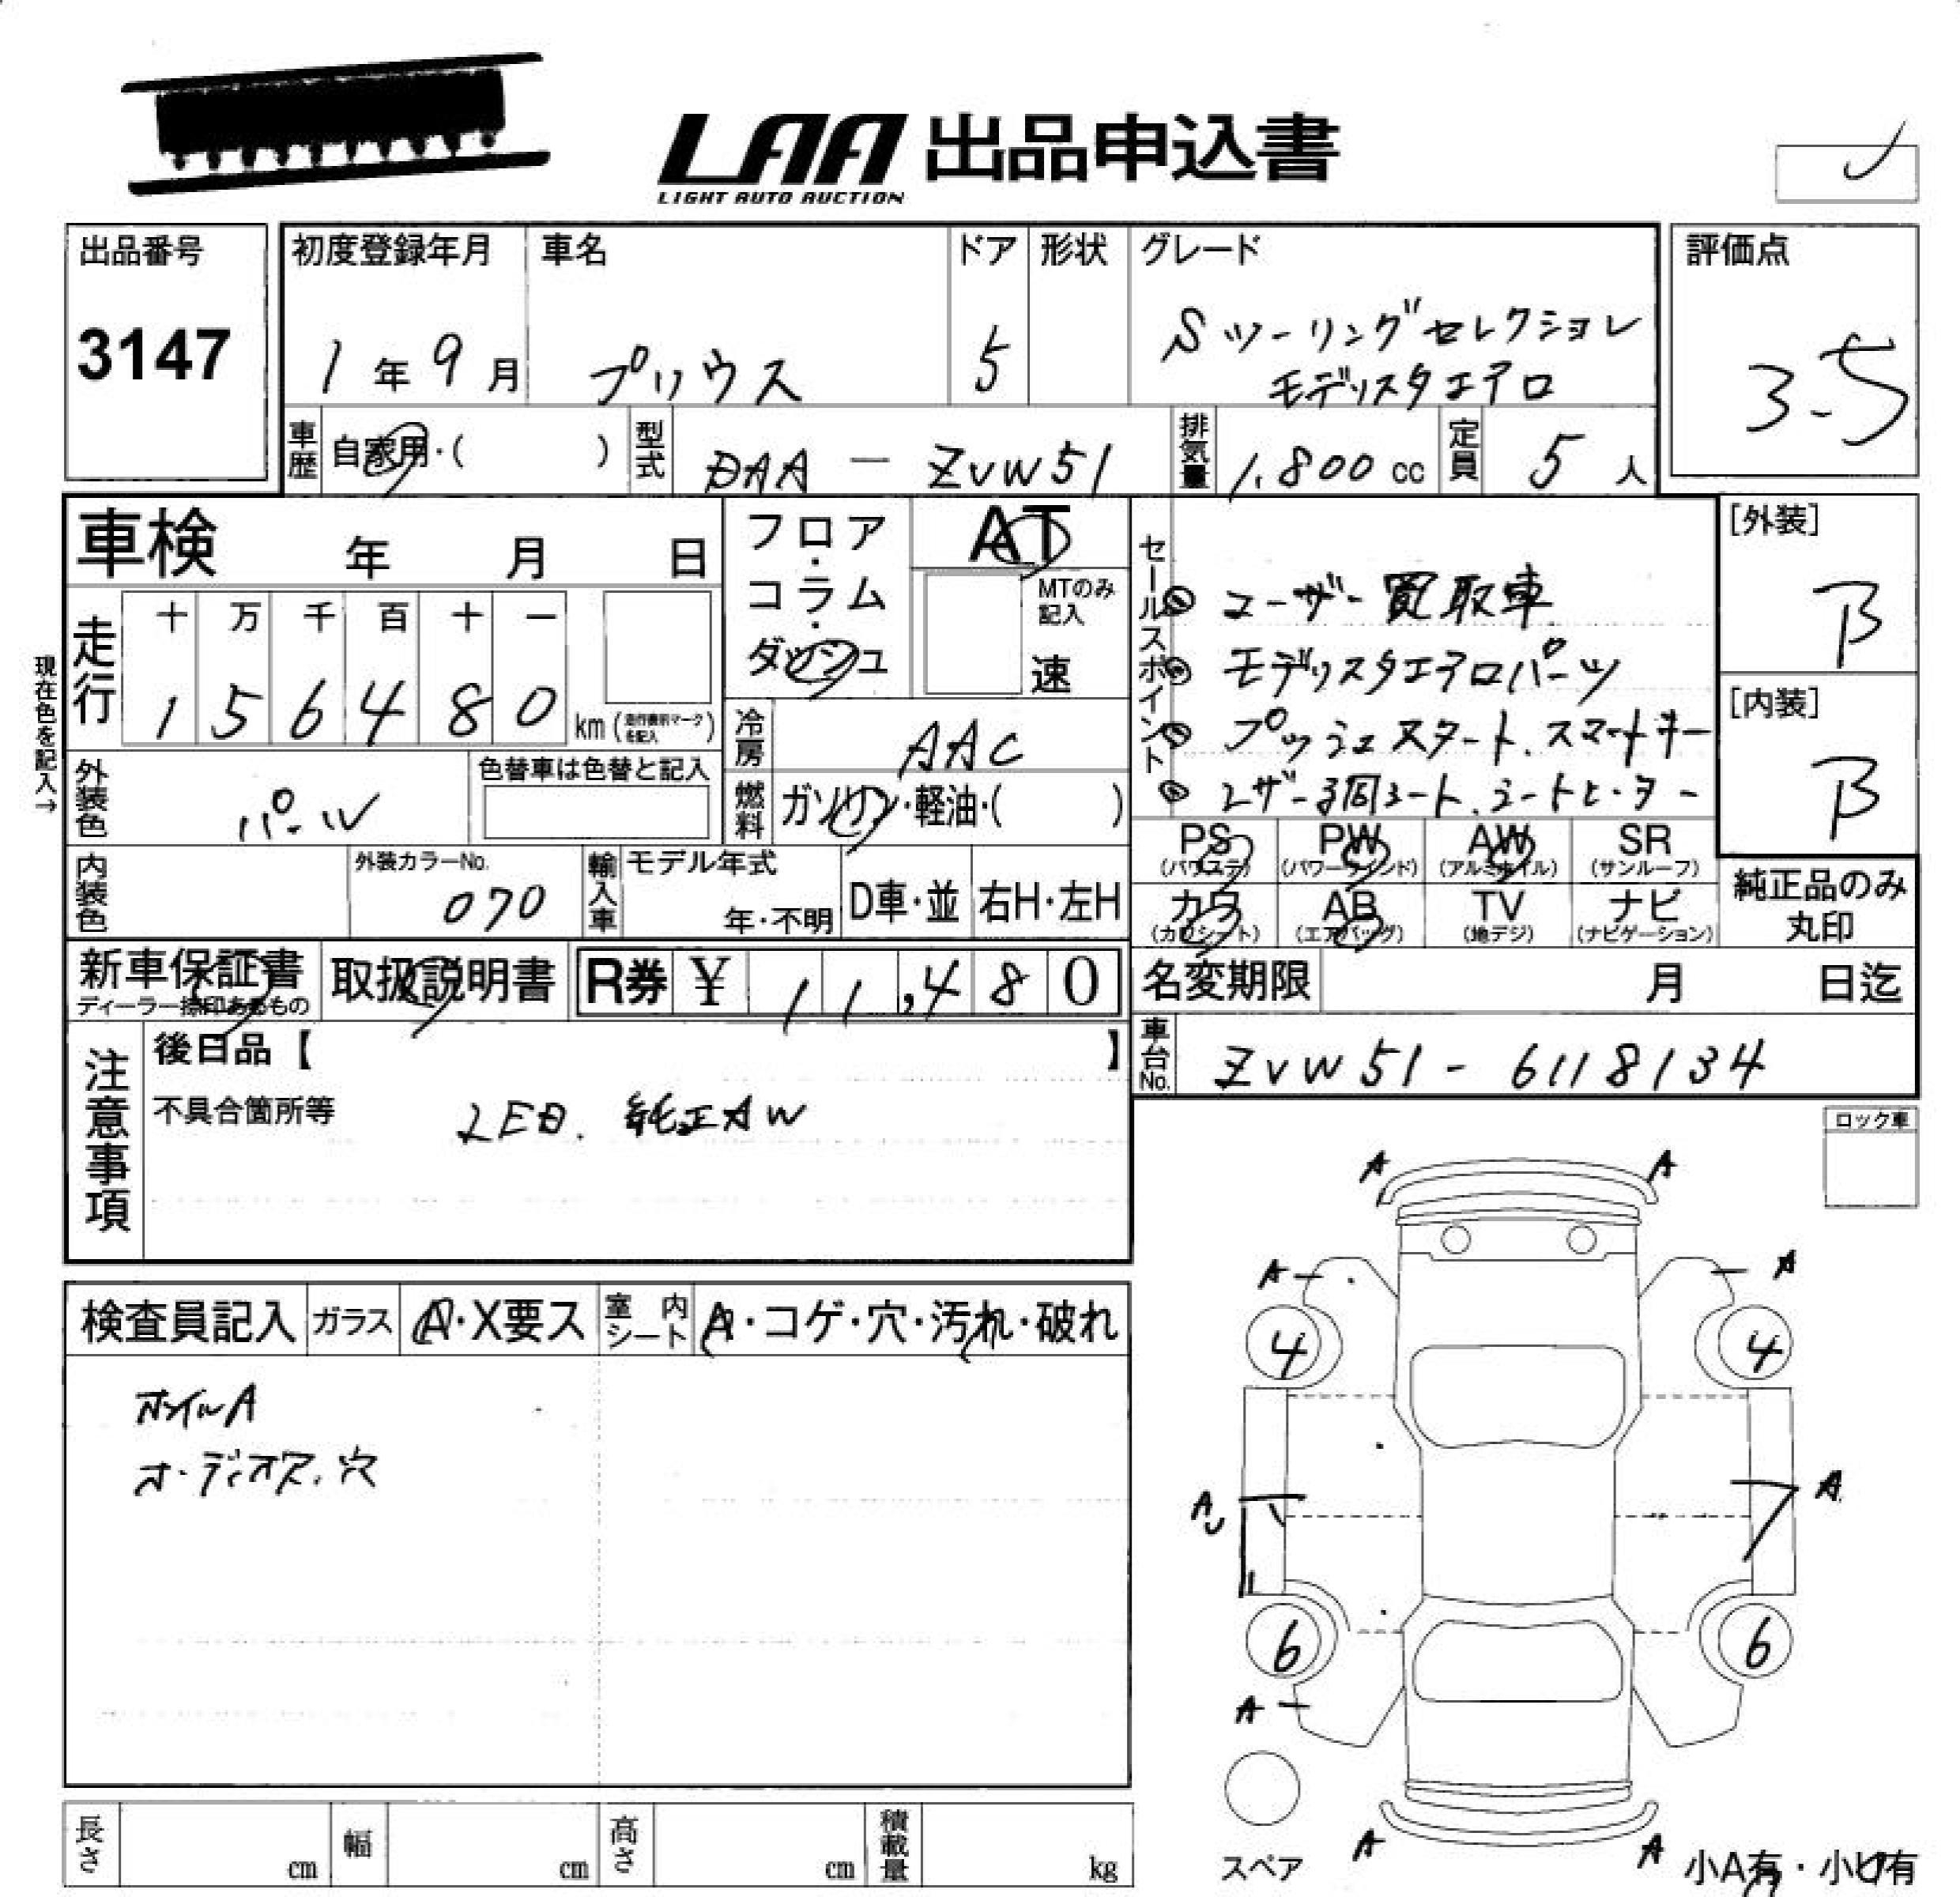 LAA 出品申込書
LIGHT AUTO AUCTION
出品番号
3147
初度登録年月
1年9月
車名
プリウス
ドア
5
形状
グレード
Sツーリングセレクション
モデリスタエアロ
評価点
3.5
車歴
自家用・( )
型式
DAA - ZVW51
排気量
1,800 cc
定員
5 人
車検 年 月 日
フロア・コラム・ダッシュ
AT
MTのみ記入
速
セールスポイント
ユーザー買取車
モデリスタエアロパーツ
プッシュスタート、スマートキー
レザー調シート、シートヒーター
[外装]
B
[内装]
B
現在色を記入→
走行
十 万 千 百 十 一
1 5 6 4 8 0 km
冷房
AAC
外装色
パール
色替車は色替と記入
燃料
ガソリン・軽油・( )
PS (パワステ)
PW (パワーウインド)
AW (アルミホイル)
SR (サンルーフ)
カワ (カワシート)
AB (エアバッグ)
TV (地デジ)
ナビ (ナビゲーション)
純正品のみ
丸印
内装色
外装カラーNo.
070
輸入車
モデル年式
年・不明
D車・並
右H・左H
新車保証書
取扱説明書
R券 ¥ 11,480
名変期限 月 日迄
車台No.
ZVW51-6118134
注意事項
後日品【 】
不具合箇所等
LED. 純正AW
ロック車
検査員記入
ガラス
A・X要ス
室内シート
A・コゲ・穴・汚れ・破れ
ホイルA
オーディオレス、穴
A A
A A
4 4
A A
6 6
A
A A
スペア
小A有・小U有
長さ cm
幅 cm
高さ cm
積載量 kg